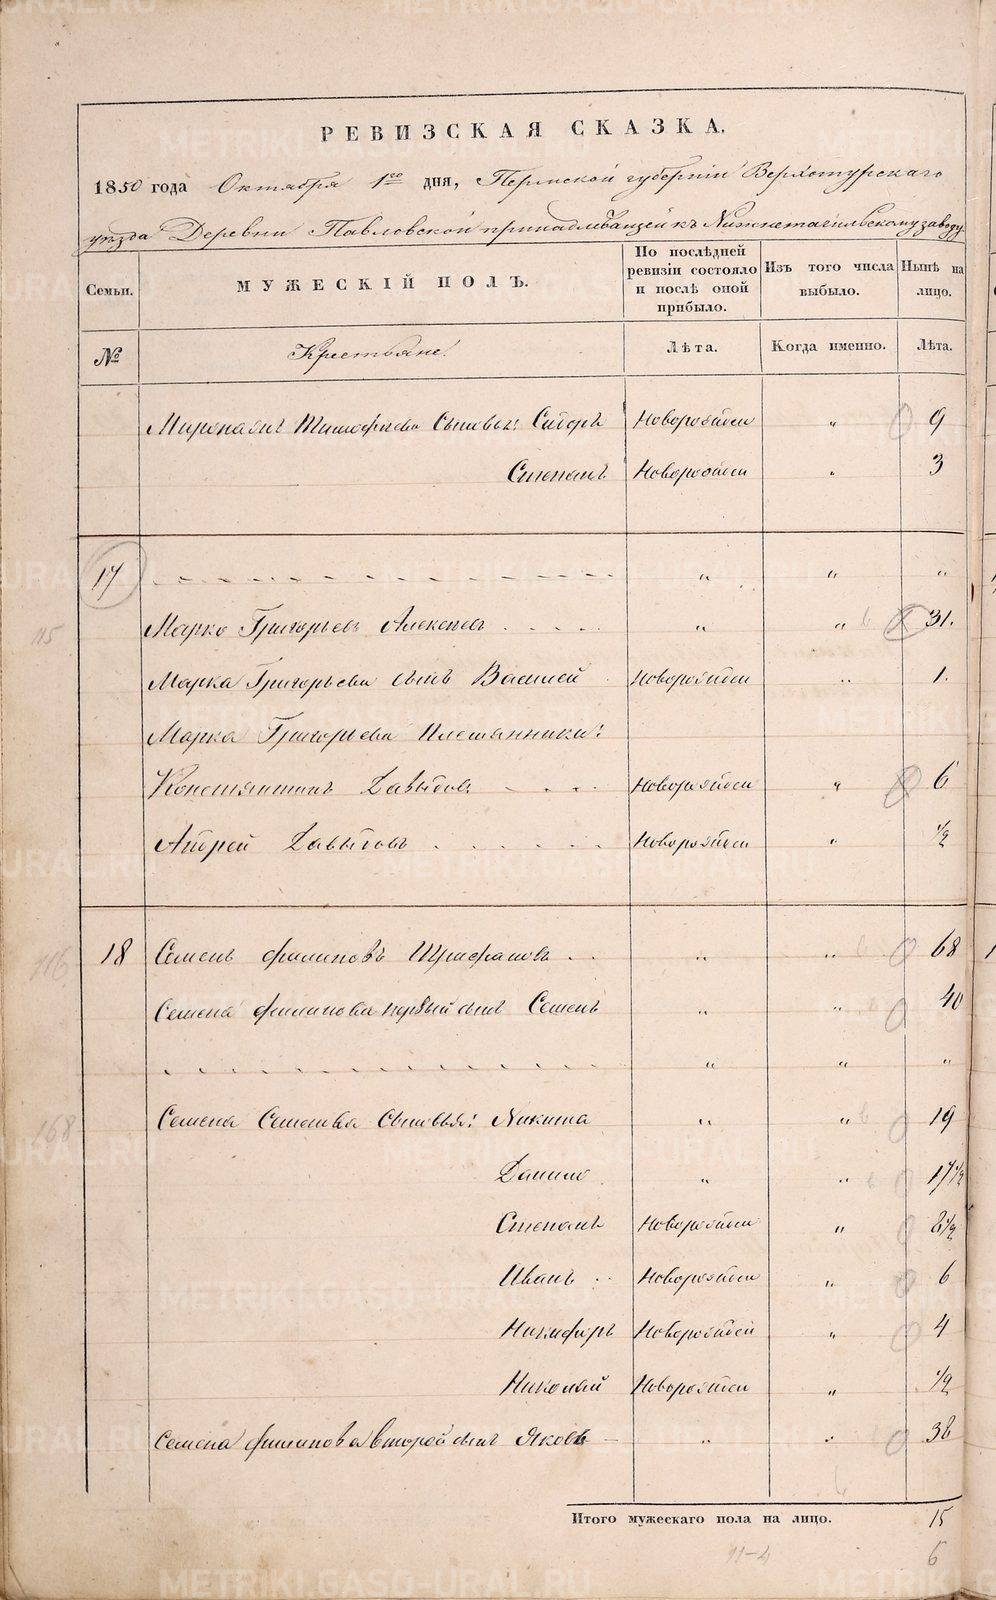 РЕВИЗСКАЯ СКАЗКА.
1850 года Октября 1го дня, Пермской губернии Верхотурскаго
уѣзда Деревни Павловской принадлежащей къ Нижнетагильскому заводу
Семьи.
МУЖЕСКІЙ ПОЛЪ.
По послѣдней ревизіи состояло и послѣ оной прибыло.
Изъ того числа выбыло.
Нынѣ на лицо.
№
Крестьяне.
Лѣта.
Когда именно.
Лѣта.
Тимофѣева Сыновья: Сидоръ Новорожден " 9
Степанъ Новорожден " 3
17 " " "
115 Марко Григорьевъ Алексѣевъ " " 31.
Марка Григорьева сынъ Василей Новорожден " 1.
Марка Григорьева Племянники:
Констянтинъ Давыдовъ Новорожден " 6
Андрей Давыдовъ Новорожден " 1/2
116 18 Семенъ Филиповъ " " 68
Семена Филипова первый сынъ Семенъ " " 40
" " "
168 Семена Семенова Сыновья: Никита " " 19
Данило " " 17 1/2
Степанъ Новорожден " 8 1/2
Иванъ Новорожден " 6
Никифоръ Новорожден " 4
Николай Новорожден " 1/2
Семена Филипова второй сынъ Яковъ " " 38
Итого мужескаго пола на лицо. 15
11-4 6
METRIKI.GASO-URAL.RU